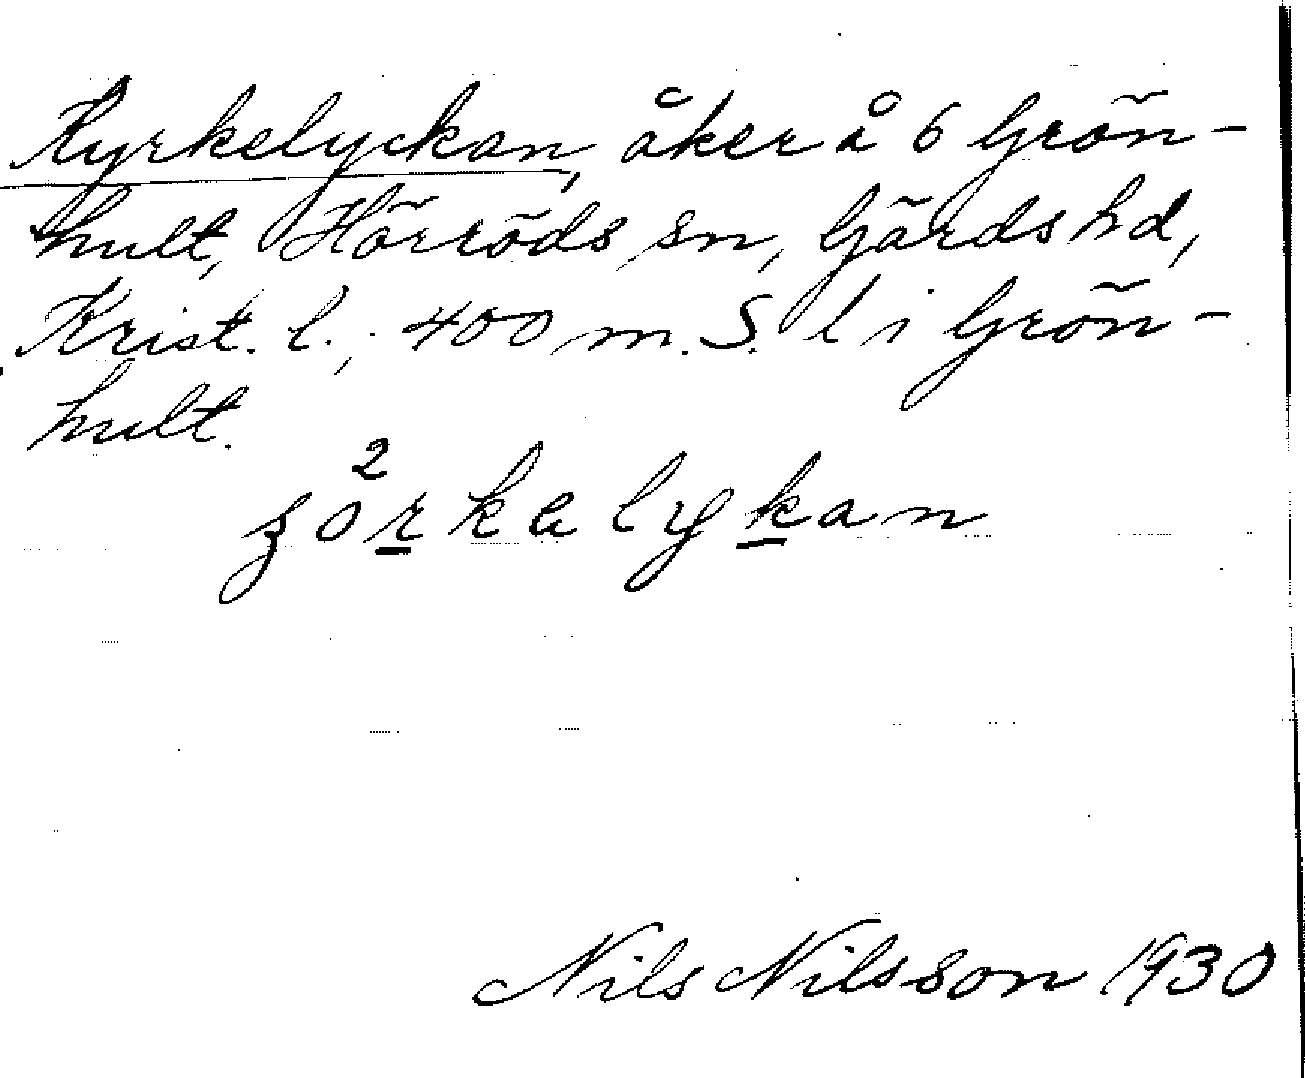 Kyrkelyckan, åker å 6 Grön-
hult, Hörröds sn, Gärds hd,
Krist. l.; 400 m. S. l i Grön-
hult.
2
Nils Nilsson 1930